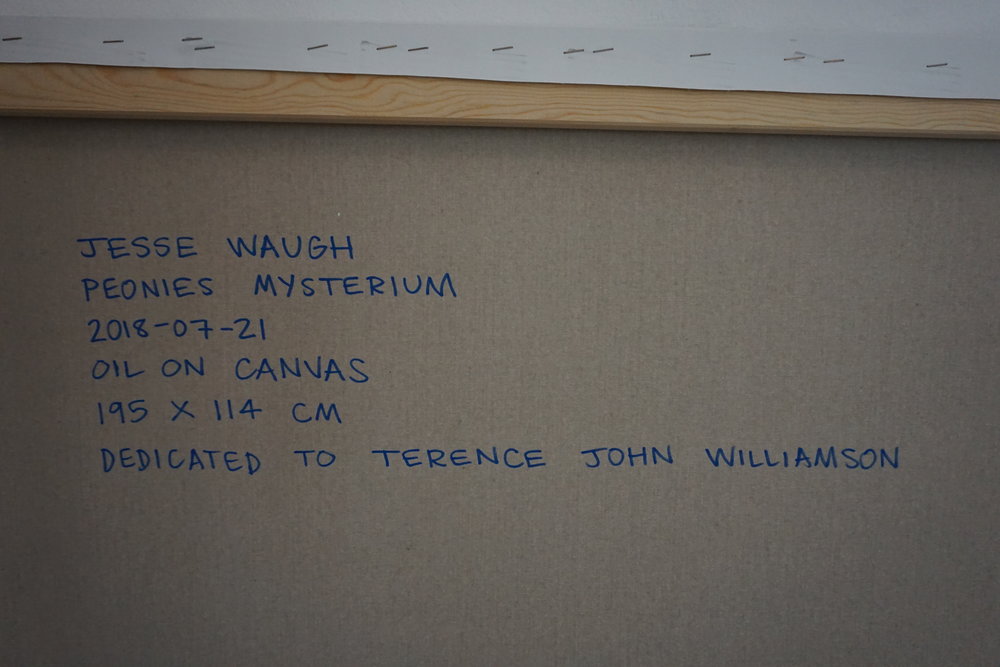 JESSE WAUGH
PEONIES MYSTERIUM
2018-07-21
OIL ON CANVAS
195 X 114 CM
DEDICATED TO TERENCE JOHN WILLIAMSON